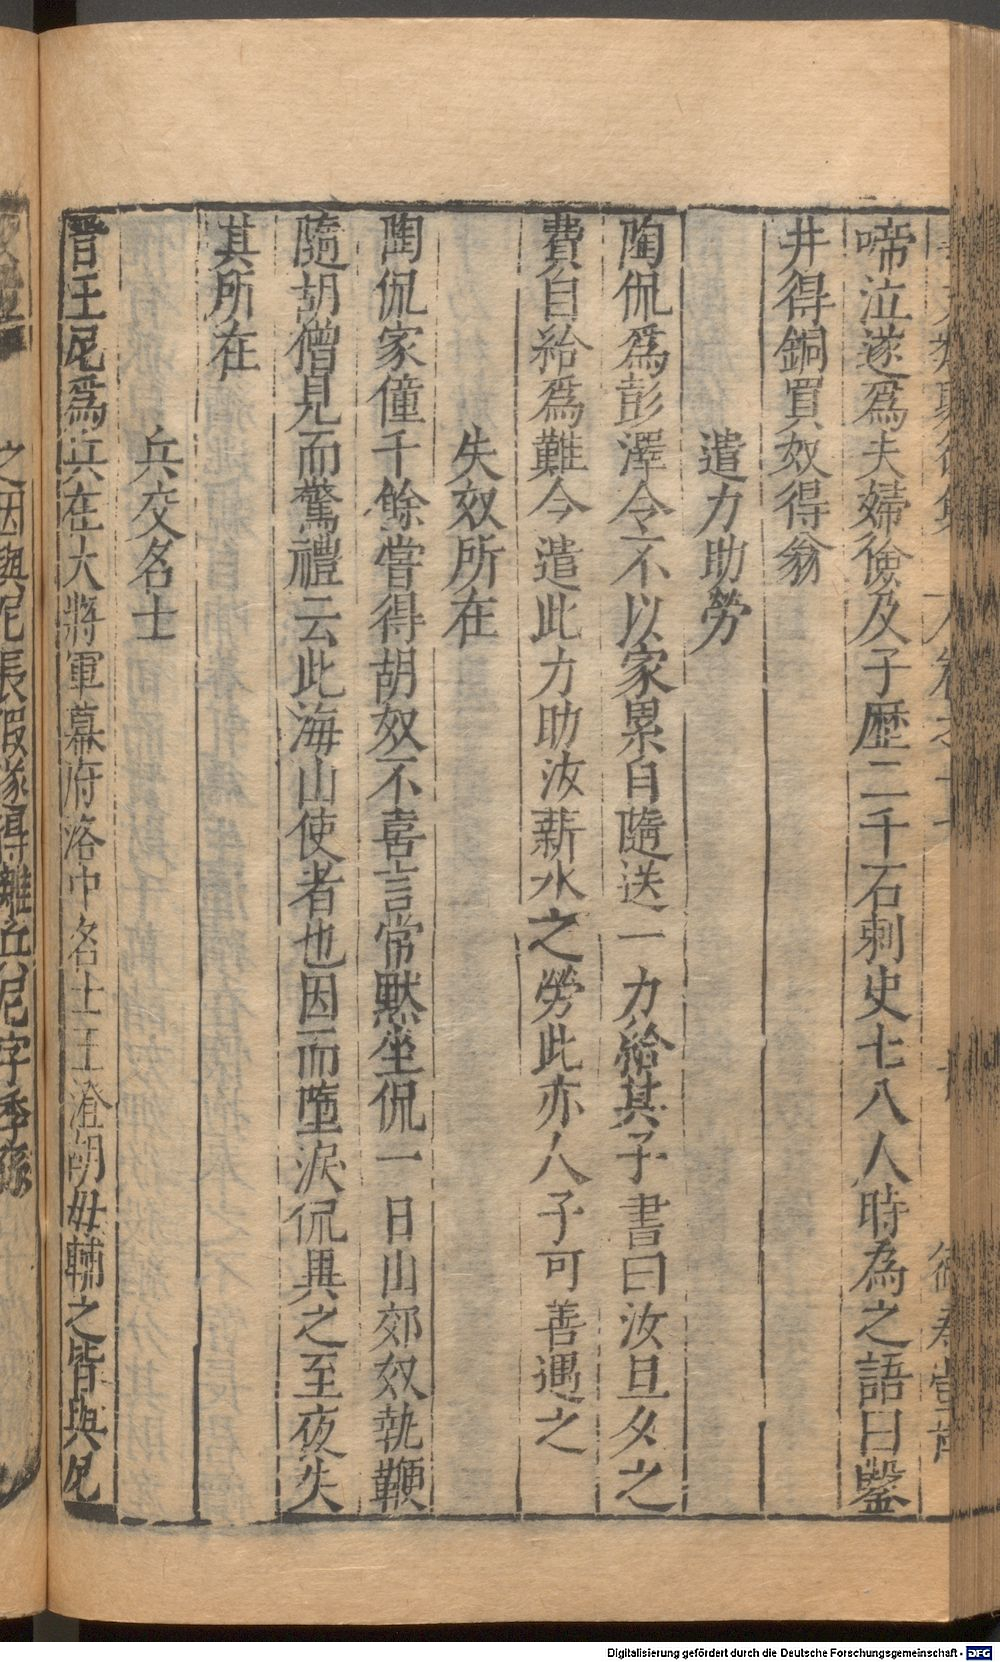 啼泣遂爲夫婦儉及子歴二千石刺史七八人時為之語曰鑿
井得銅買奴得翁
遣力助勞
陶侃爲彭澤令不以家累自隨送一力給其子書曰汝旦夕之
費自給爲難今遣此力助汝薪水之勞此亦人子可善遇之
失奴所在
陶侃家僮千餘嘗得胡奴不喜言常默坐侃一日山郊奴執鞭
隨胡僧見而驚禮云此海山使者也因而墮淚侃異之至夜失
其所在
兵交名士
晋王尼爲兵在大將軍幕府洛中名士王澄胡毋輔之皆與尼
之因與尼長假遂得離兵尼字季孫
Digitalisierung gefördert durch die Deutsche Forschungsgemeinschaft - DFG